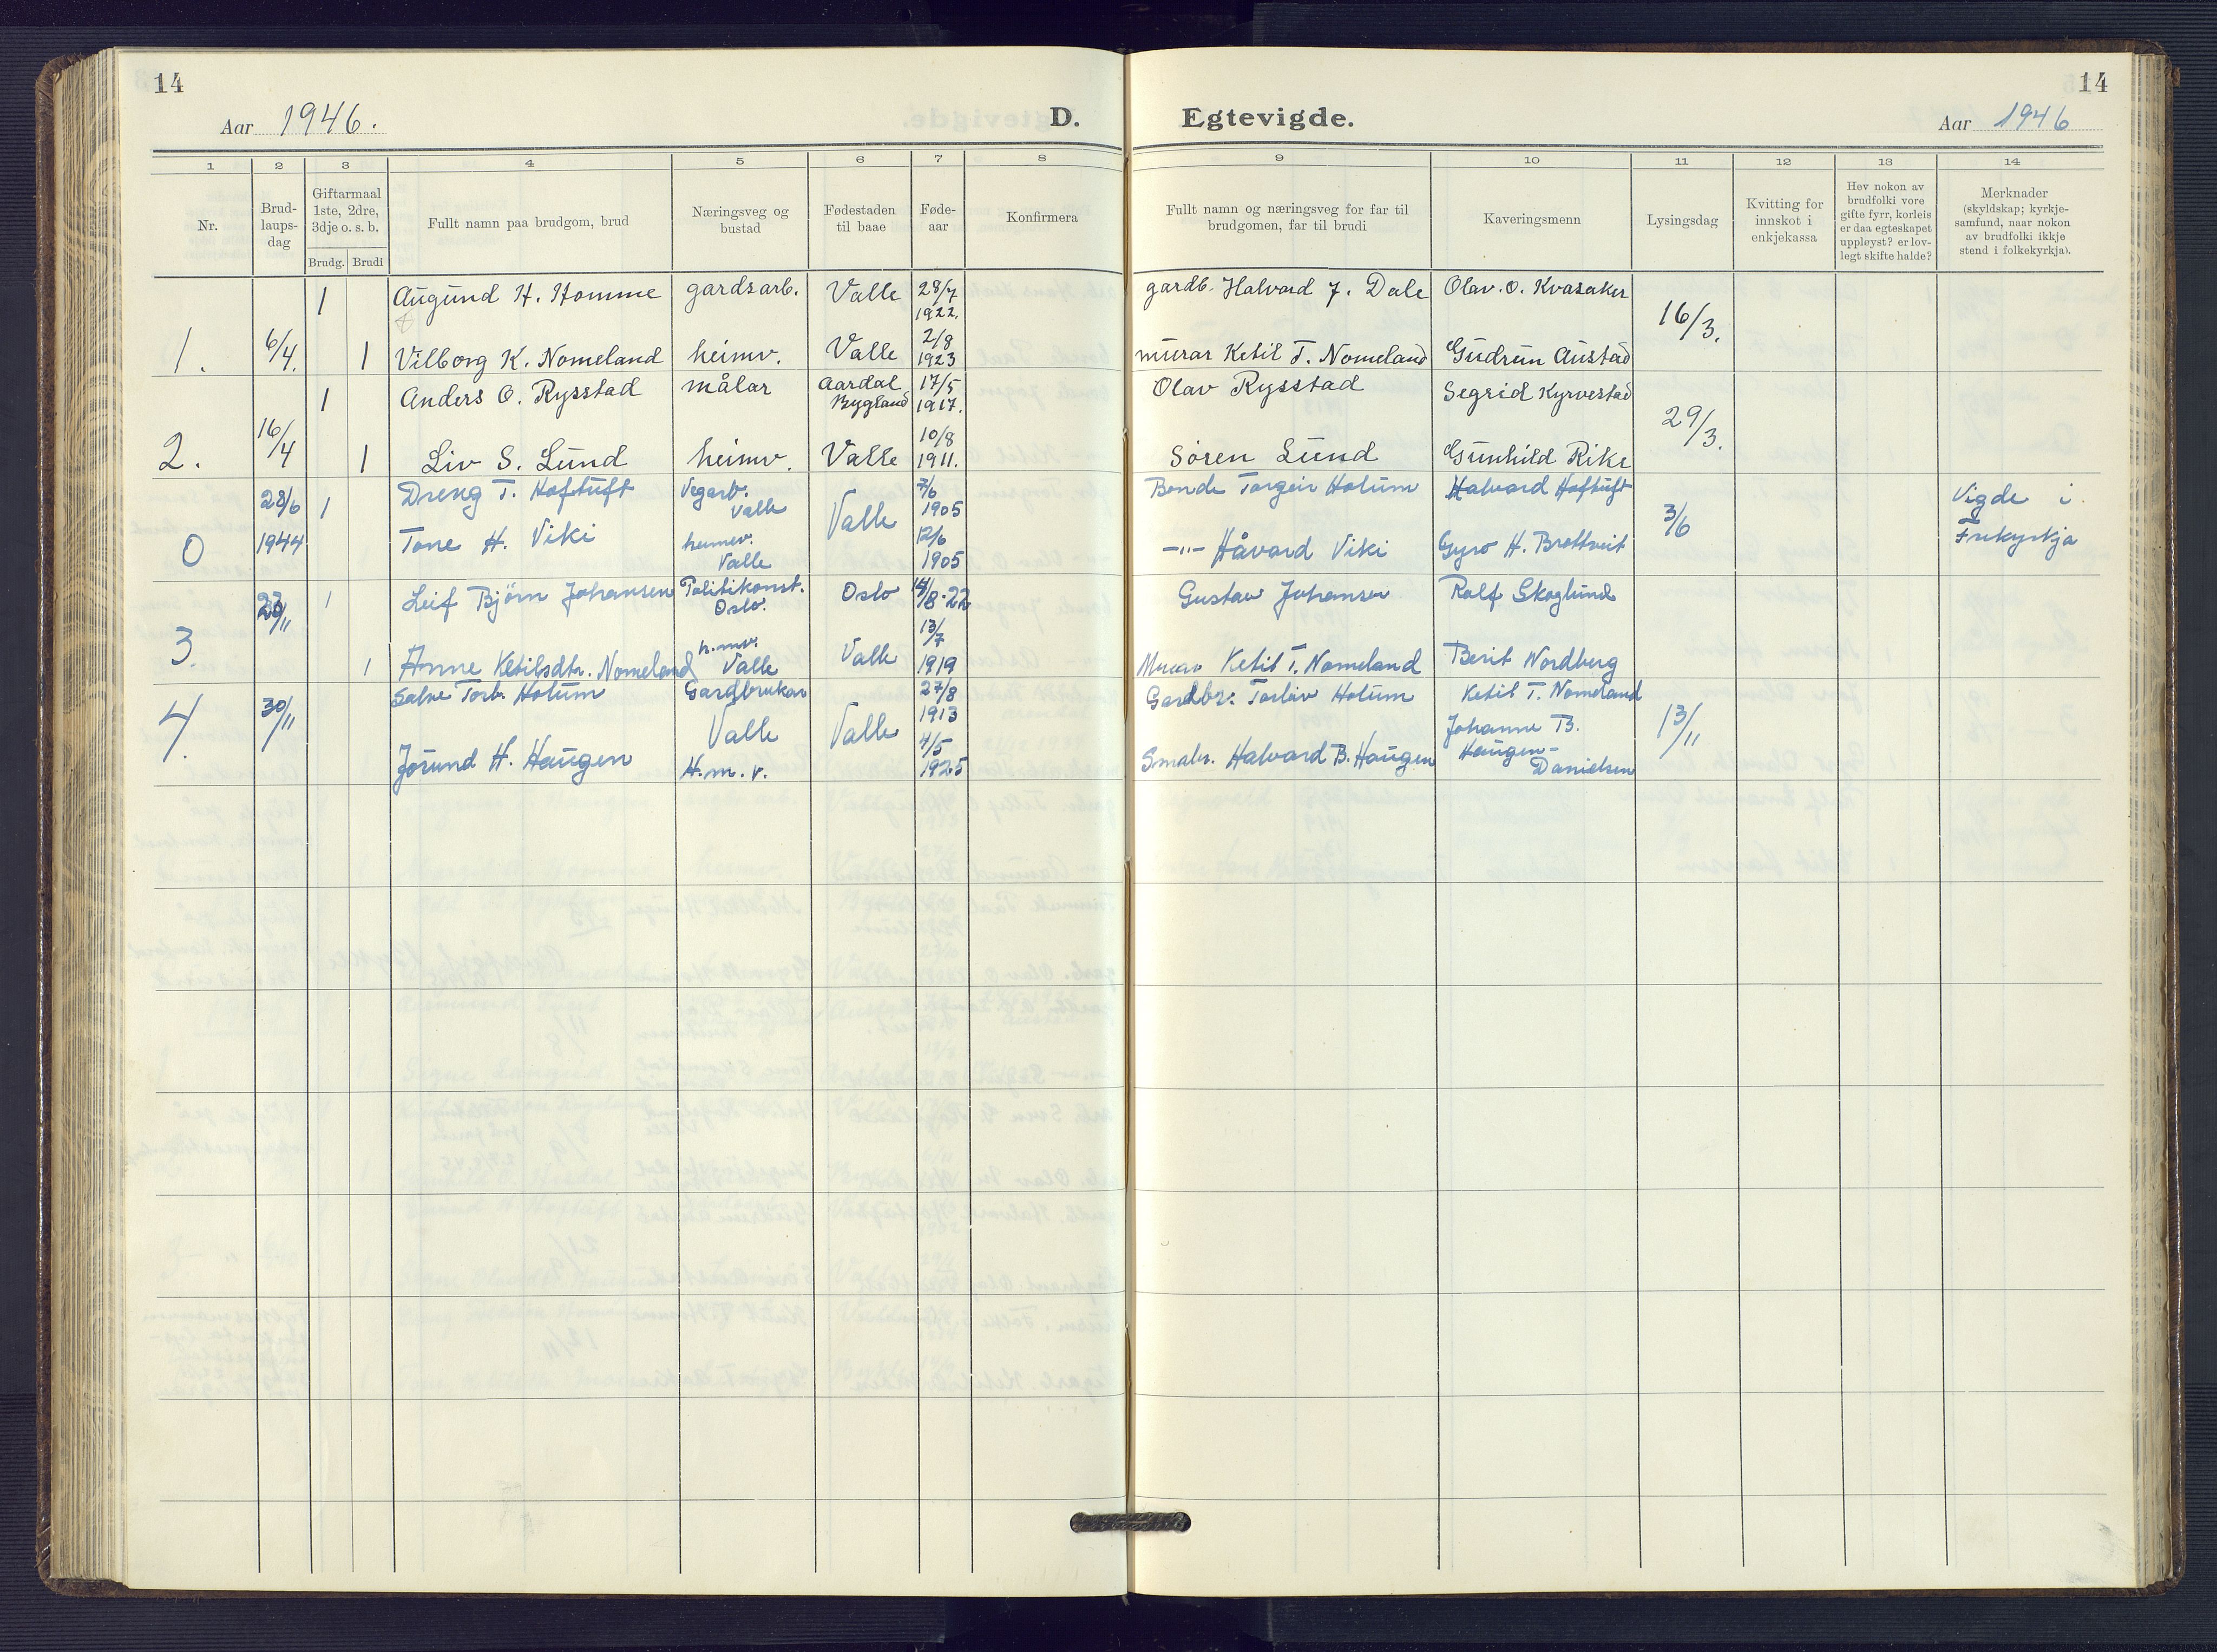 14
Aar 1946.
D.
Egtevigde.
14
Aar 1946
1 2 3 4 5 6 7 8
9 10 11 12 13 14
Nr.
Brud-
laups-
dag
Giftarmaal
1ste, 2dre,
3dje o. s. b.
Brudg. Brudi
Fullt namn paa brudgom, brud
Næringsveg og
bustad
Fødestaden
til baae
Føde-
aar
Konfirmera
Fullt namn og næringsveg for far til
brudgomen, far til brudi
Kaveringsmenn
Lysingsdag
Kvitting for
innskot i
enkjekassa
Hev nokon av
brudfolki vore
gifte fyrr, korleis
er daa egteskapet
uppløyst? er lov-
legt skifte halde?
Merknader
(skyldskap; kyrkje-
samfund, naar nokon
av brudfolki ikkje
stend i folkekyrkja).
1 Augund H. Homme gardsarb. Valle 28/7 1922. gardb. Halvard J. Dale Olav. O. Kvasaker
16/3.
1. 6/4. 1 Vilborg K. Nomeland heimv. Valle 2/8 1923 murar Ketil T. Nomeland Gudrun Austad
1 Anders O. Rysstad målar Aardal Bygland 17/5 1917. Olav Rysstad Segrid Kyrvestad
29/3.
2. 16/4 1 Liv S. Lund heimv. Valle 10/8 1911. Sören Lund Gunhild Rike
28/6 1 Dreng T. Hoftuft Vegarb. Valle 1905 Bonde Torgeir Hotum Halvard Hoftuft Vigde i
0 1944 Tone H. Viki heimv. Valle Valle 12/6 1905 —"— Håvard Viki Gyro H. Brottveit 3/6 Frikyrkja
1 Leif Björn Johansen Politikonst. Oslo. Oslo Gustav Johansen Rolf Skoglund
3. 1 Anne Ketilsdtr. Nomeland h.mv. Valle Valle 13/7 1919 Murar Ketil T. Nomeland Berit Nordberg
4. 30/11 Salve Torb. Hotum Gardbrukar Valle Valle 27/8 1913 Gardbr. Torleiv Hotum Ketil T. Nomeland
13/11
Jorund H. Haugen H.m.v. 4/5 1925 Smabr. Halvard B. Haugen Johanne B. Haugen-Danielsen